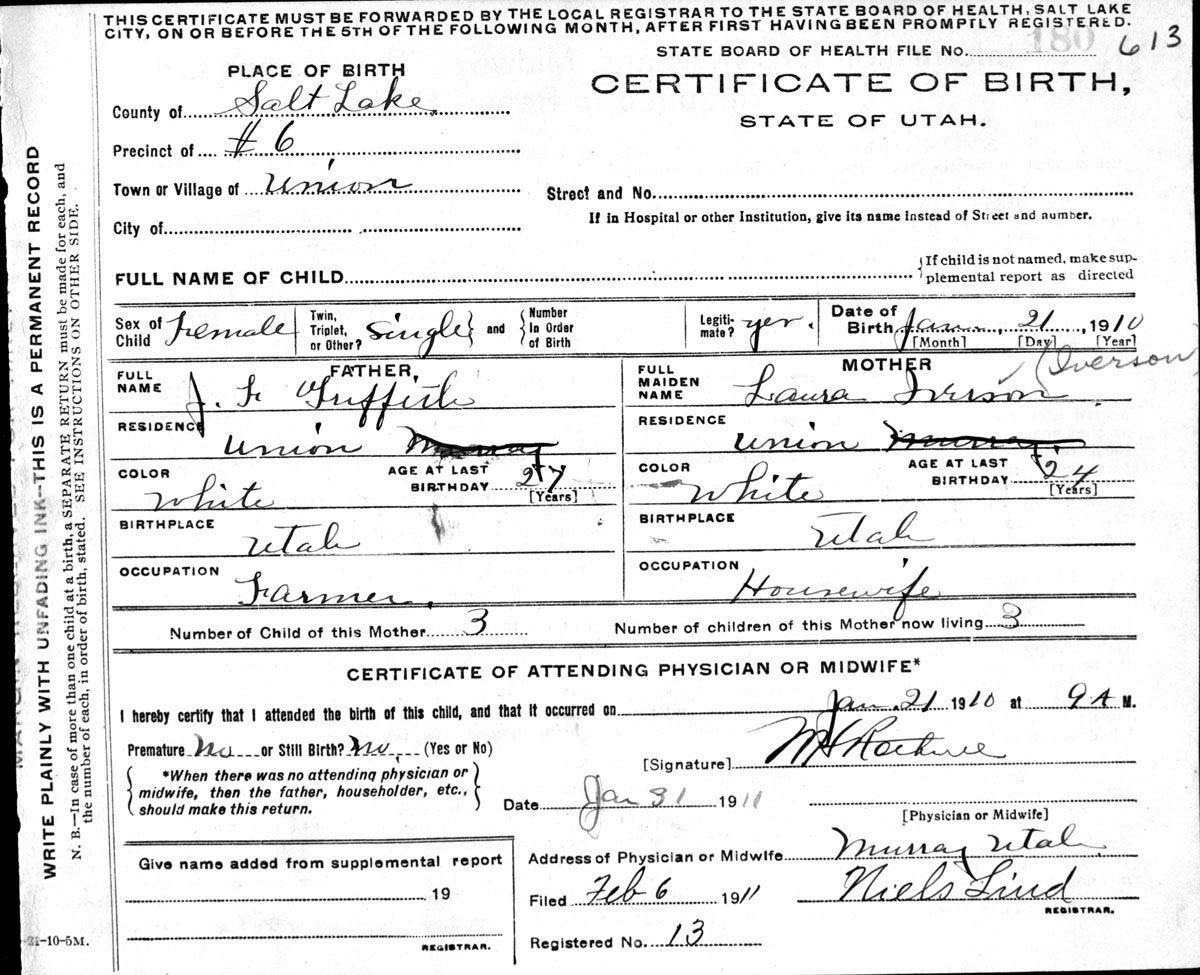 THIS CERTIFICATE MUST BE FORWARDED BY THE LOCAL REGISTRAR TO THE STATE BOARD OF HEALTH, SALT LAKE
CITY, ON OR BEFORE THE 5TH OF THE FOLLOWING MONTH, AFTER FIRST HAVING BEEN PROMPTLY REGISTERED.
STATE BOARD OF HEALTH FILE No. 180 613
PLACE OF BIRTH
CERTIFICATE OF BIRTH,
STATE OF UTAH.
County of Salt Lake
Precinct of #6
Town or Village of Union
Street and No.
If in Hospital or other Institution, give its name instead of Street and number.
City of
FULL NAME OF CHILD
If child is not named, make sup-
plemental report as directed
Sex of Child Female
Twin, Triplet, or Other? Single and Number In Order of Birth
Legiti-mate? yes.
Date of Birth Jan. 21, 1910
[Month] [Day] [Year]
FATHER,
FULL NAME J. F Griffith
MOTHER
FULL MAIDEN NAME Laura Iverson (Iverson)
RESIDENCE Union Murray
RESIDENCE Union Murray
COLOR White
AGE AT LAST BIRTHDAY 27 [Years]
COLOR White
AGE AT LAST BIRTHDAY 24 [Years]
BIRTHPLACE Utah
BIRTHPLACE Utah
OCCUPATION Farmer.
OCCUPATION Housewife
Number of Child of this Mother 3
Number of children of this Mother now living 3
CERTIFICATE OF ATTENDING PHYSICIAN OR MIDWIFE*
I hereby certify that I attended the birth of this child, and that it occurred on Jan. 21 1910 at 9 A M.
Premature No or Still Birth? No (Yes or No)
[Signature]
*When there was no attending physician or
midwife, then the father, householder, etc.,
should make this return.
Date Jan 31 1911
[Physician or Midwife]
Give name added from supplemental report
19
REGISTRAR.
Address of Physician or Midwife Murray Utah
Filed Feb 6 1911 Niels Lind
REGISTRAR.
Registered No. 13
WRITE PLAINLY WITH UNFADING INK--THIS IS A PERMANENT RECORD
N. B.—In case of more than one child at a birth, a SEPARATE RETURN must be made for each, and
the number of each, in order of birth, stated. SEE INSTRUCTIONS ON OTHER SIDE.
-10-5M.